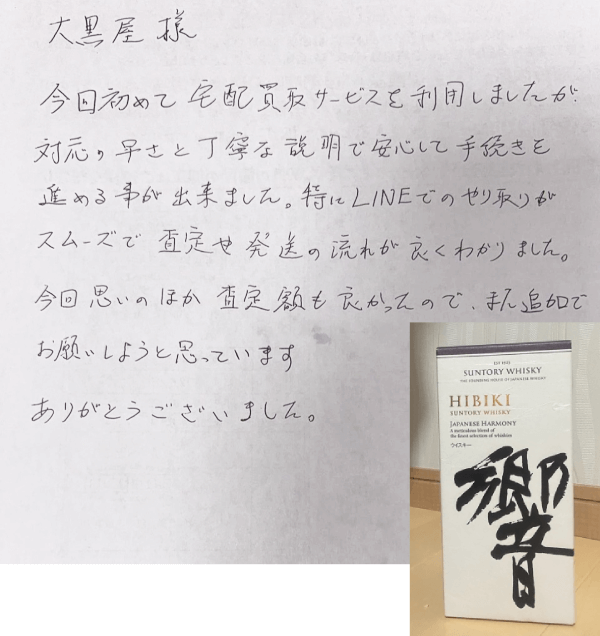 大黒屋 様
今回初めて 宅配買取サービスを 利用しましたが、
対応の早さと丁寧な説明で安心して手続きを
進める事が出来ました。特にLINEでのやり取りが
スムーズで 査定や発送の流れが良くわかりました。
今回思いのほか 査定額も良かったので、また追加で
お願いしようと思っています
ありがとうございました。
SUNTORY WHISKY
THE FOUNDING HOUSE OF JAPANESE WHISKY
HIBIKI
SUNTORY WHISKY
JAPANESE HARMONY
A meticulous blend of
the finest selection of whiskies
ウイスキー
響